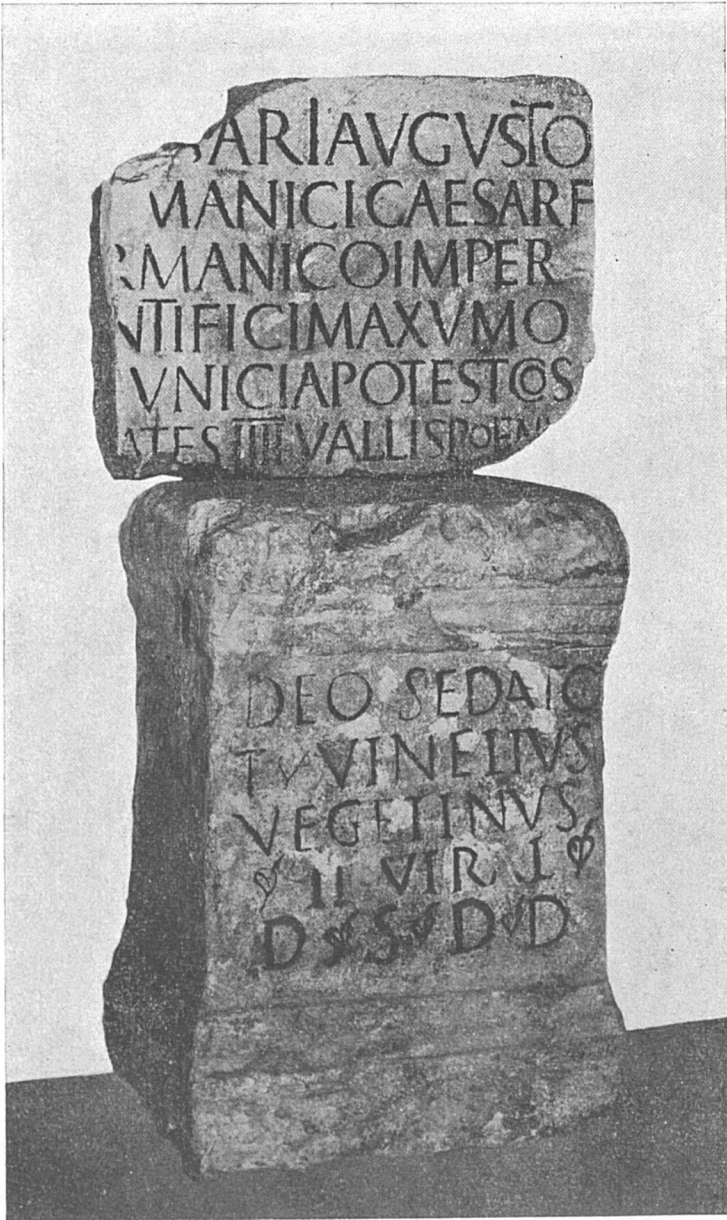 ARI AVGVSTO
MANICI CAESAR F
RMANICO IMPER
NTIFICI MAXVMO
VNICIA POTEST COS
ATES IIII VALLIS POENI
DEO SEDATO
VINELIVS
VEGETINVS
II VIR I
D S D D